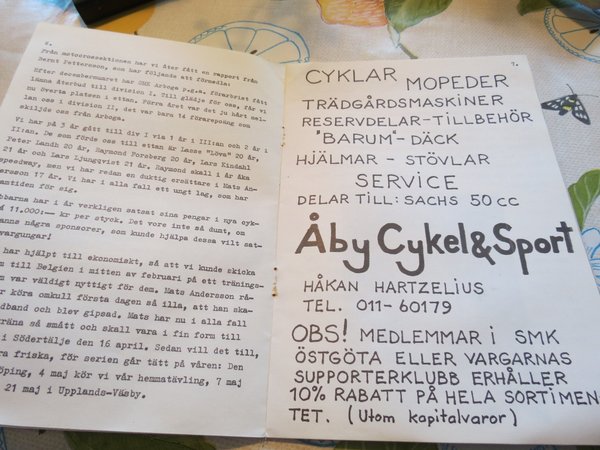 6.
Från motocrosssektionen har vi åter fått en rapport från
Bernt Pettersson, som har följande att förmedla:
Efter decembermaret har SMK Arboga p.g.a. förarbrist fått
lämna återbud till division I. Till glädje för oss, får vi
nu överta platsen i ettan. Förra året var det ju hårt mel
lan oss i division II, det var bara 14 förarepoäng som
skiljde oss från Arboga.
Vi har på 3 år gått till div I via 1 år i III:an och 2 år i
II:an. De som förde oss till ettan är Lasse "Löva" 20 år,
Peter Landh 20 år, Raymond Forsberg 20 år, Lars Kindahl
21 år och Lars Ljungqvist 21 år. Raymond skall i år åka
speedway, men vi har redan en duktig ersättare i Mats An-
ersson 17 år. Vi har i alla fall ett ungt lag, som har
amtiden för sig.
bbarna har i år verkligen satsat sina pengar i nya cyk-
å 11.000:-- kr per styck. Det vore inte så dumt, om
anns några sponsorer, som kunde hjälpa dessa vilt sat-
vargungar!
har hjälpt till ekonomiskt, så att vi kunde skicka
m till Belgien i mitten av februari på ett tränings-
m var väldigt nyttigt för dem. Mats Andersson rå-
r köra omkull första dagen så illa, att han ska-
dband och blev gipsad. Mats har nu i alla fall
räna så smått och skall vara i fin form till
i Södertälje den 16 april. Sedan vill det till,
ra friska, för serien går tätt på våren: Den
öping, 4 maj kör vi vår hemmatävling, 7 maj
21 maj i Upplands-Väsby.
7.
CYKLAR MOPEDER
TRÄDGÅRDSMASKINER
RESERVDELAR-TILLBEHÖR
"BARUM"-DÄCK
HJÄLMAR - STÖVLAR
SERVICE
DELAR TILL: SACHS 50 CC
Åby Cykel & Sport
HÅKAN HARTZELIUS
TEL. 011-60179
OBS! MEDLEMMAR i SMK
ÖSTGÖTA ELLER VARGARNAS
SUPPORTERKLUBB ERHÅLLER
10% RABATT PÅ HELA SORTIMEN
TET. (Utom kapitalvaror)